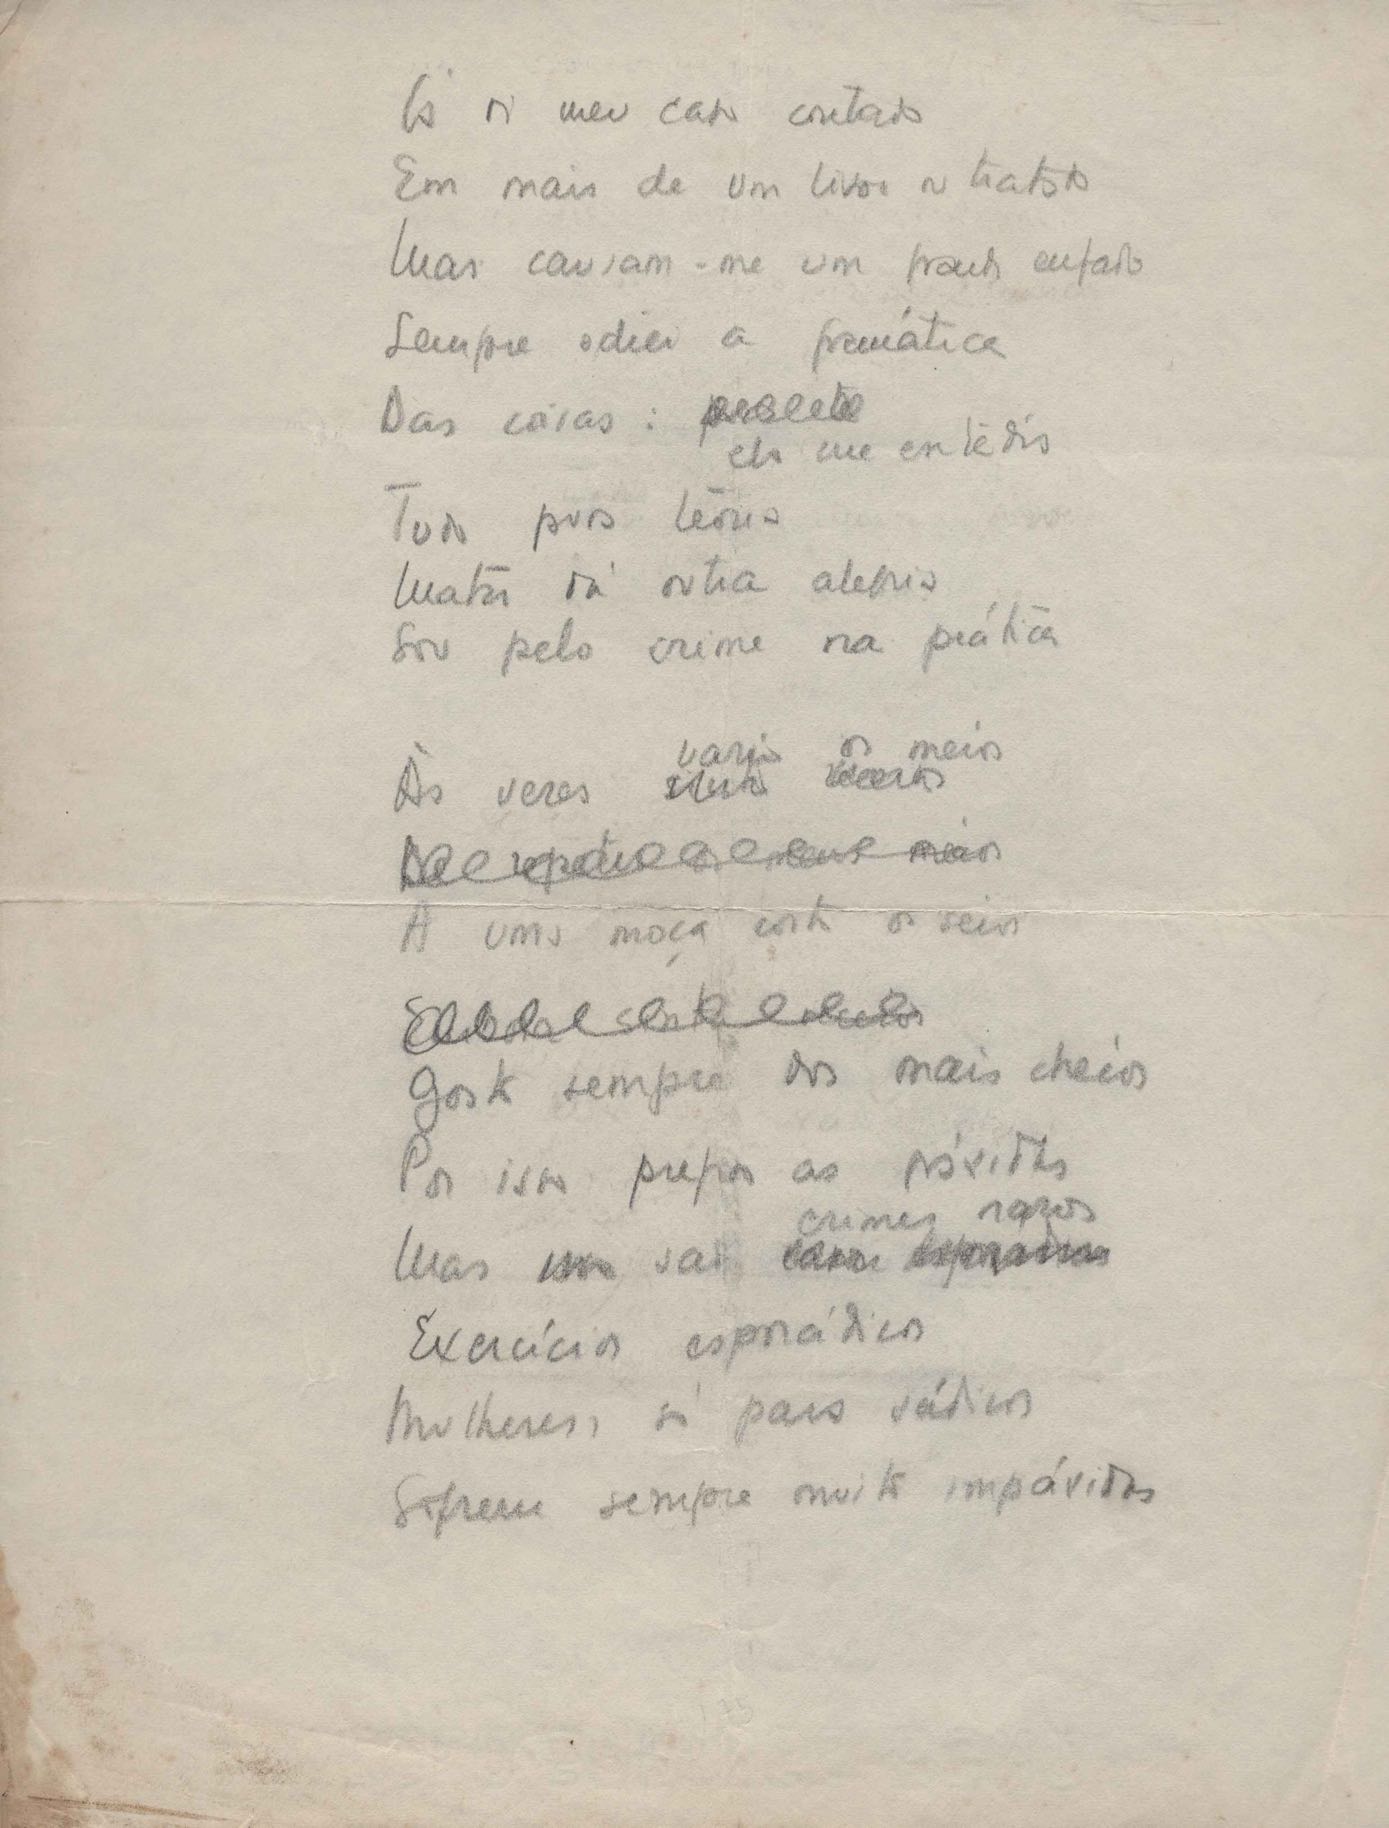 Já vi meu caso contado
Em mais de um livro ou tratado
Mas causam-me um grande enfado
Sempre odiei a gramática
Das coisas:
ela me entedia
Tudo pura teoria
Matar dá outra alegria
Sou pelo crime na prática
vario os meios
Às vezes
A uma moça corto os seios
Gosto sempre dos mais cheios
Por isso prefiro as grávidas
crimes raros
Mas são
Exercícios esporádicos
Mulheres, só para sádicos
Sofrem sempre muito impávidas